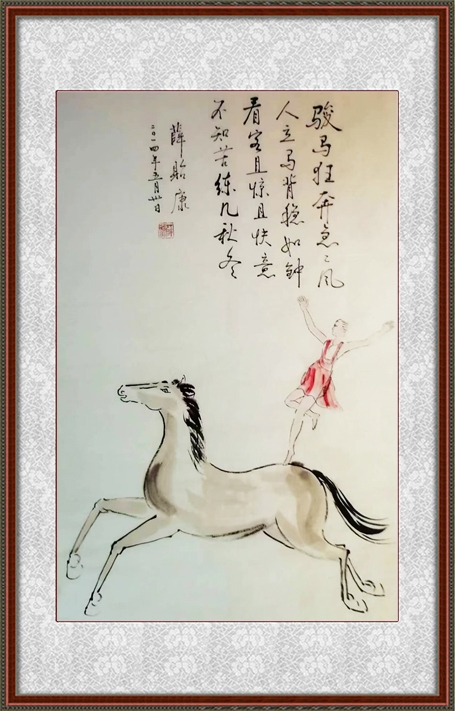 骏马狂奔急々风
人立马背稳如钟
看客且惊且快意
不知苦练几秋冬
薛贻康
二〇一四年五月卅日